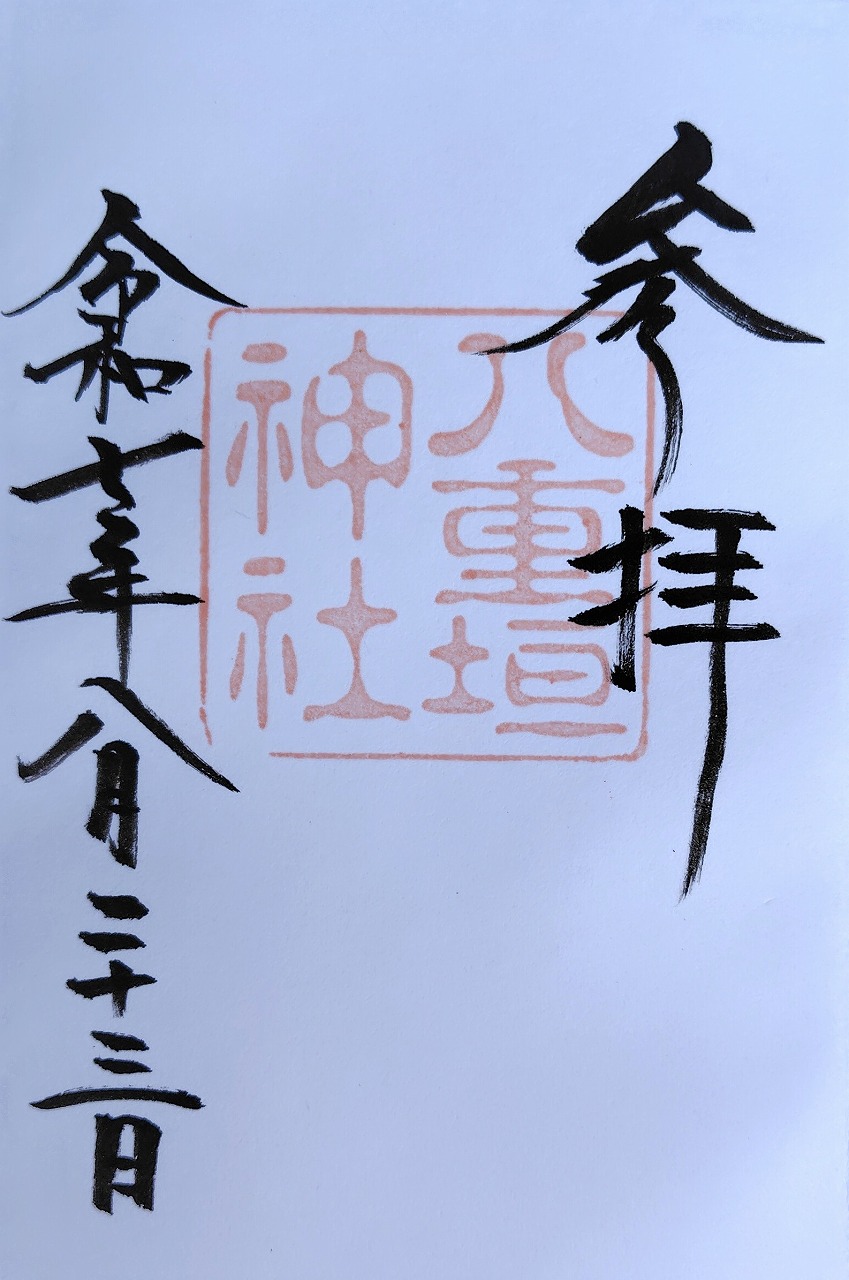 参拝
八重垣
神社
令和七年八月二十三日